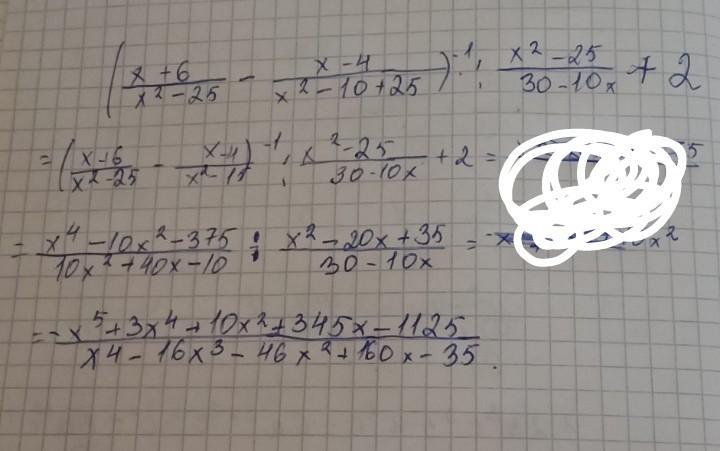 ( x+6 / x²-25 - x-4 / x²-10+25 )⁻¹ : x²-25 / 30-10x + 2
= ( x-6 / x²-25 - x-4 / x²-15 )⁻¹ : x²-25 / 30-10x + 2 =
= x⁴-10x²-375 / 10x²+40x-10 : x²-20x+35 / 30-10x =
= -x⁵+3x⁴+10x²+345x-1125 / x⁴-16x³-46x²+160x-35.